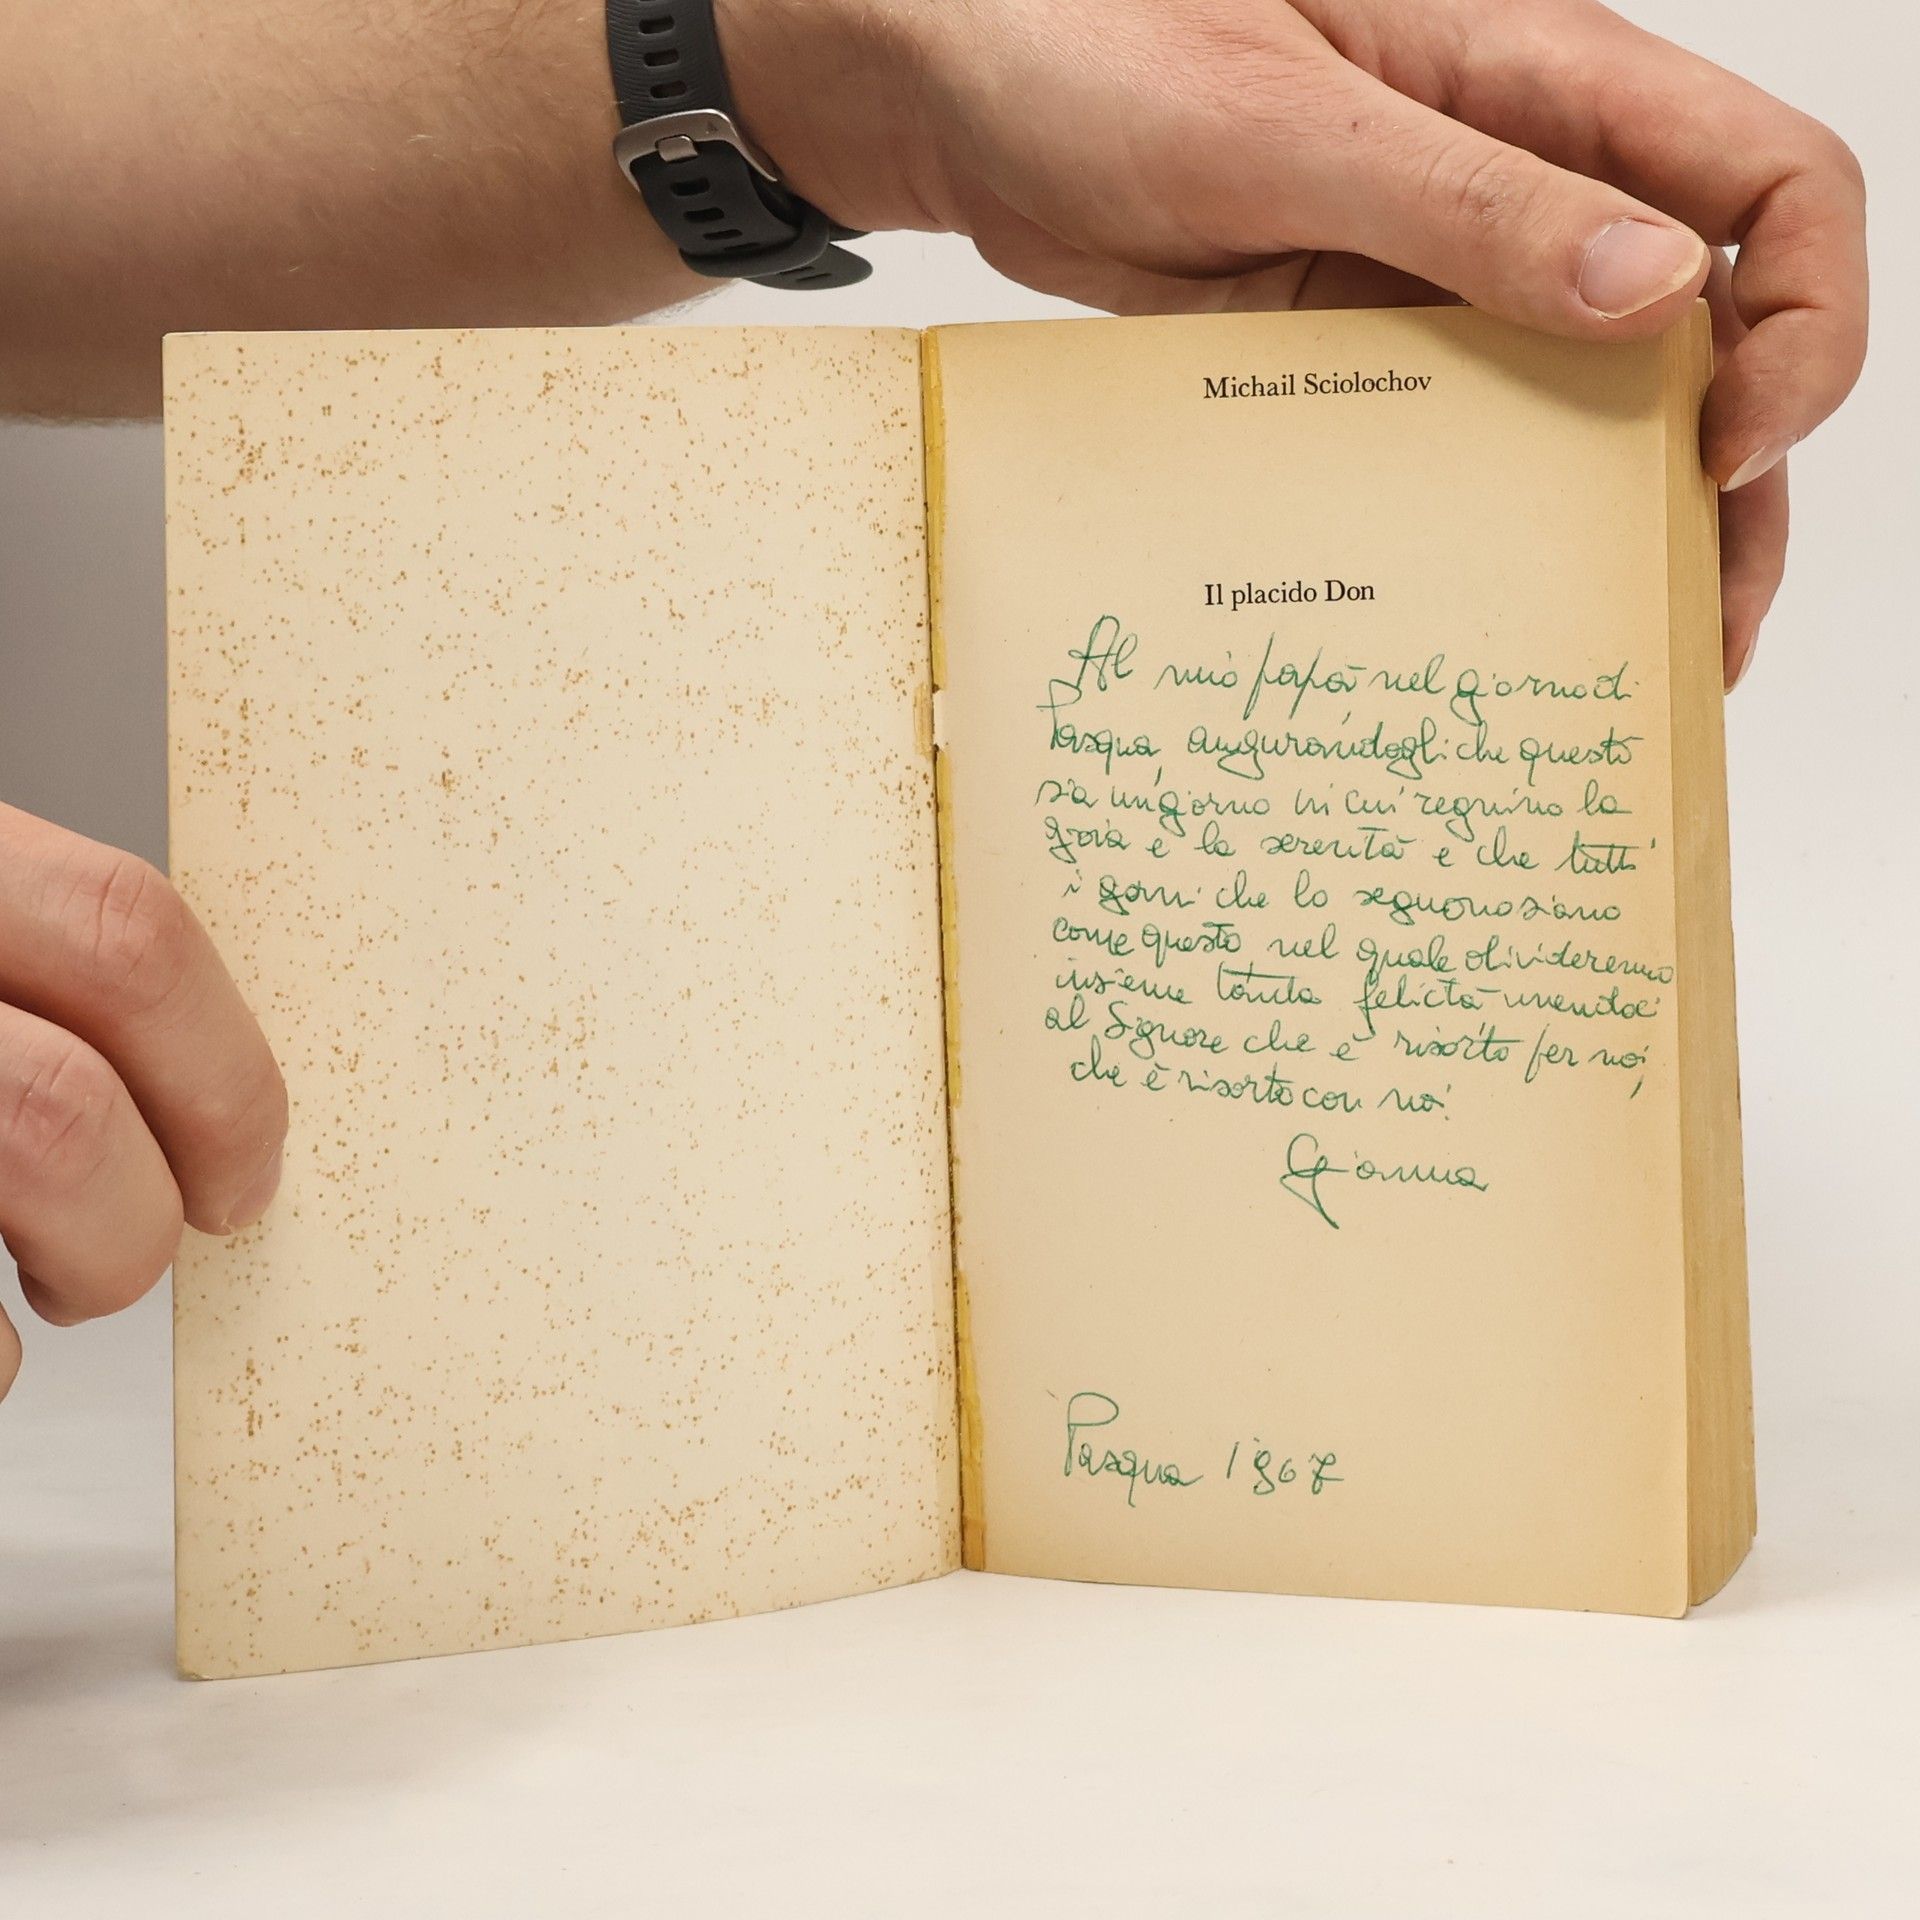 Michail Sciolochov
Il placido Don
Al mio papà nel giorno di
Pasqua, augurandogli che questo
sia un giorno in cui regnino la
gioia e la serenità e che tutti
i giorni che lo seguono siano
come questo nel quale divideremo
insieme tanta felicità unendoci
al Signore che è risorto per noi,
che è risorto con noi.
Gianna
Pasqua 1967